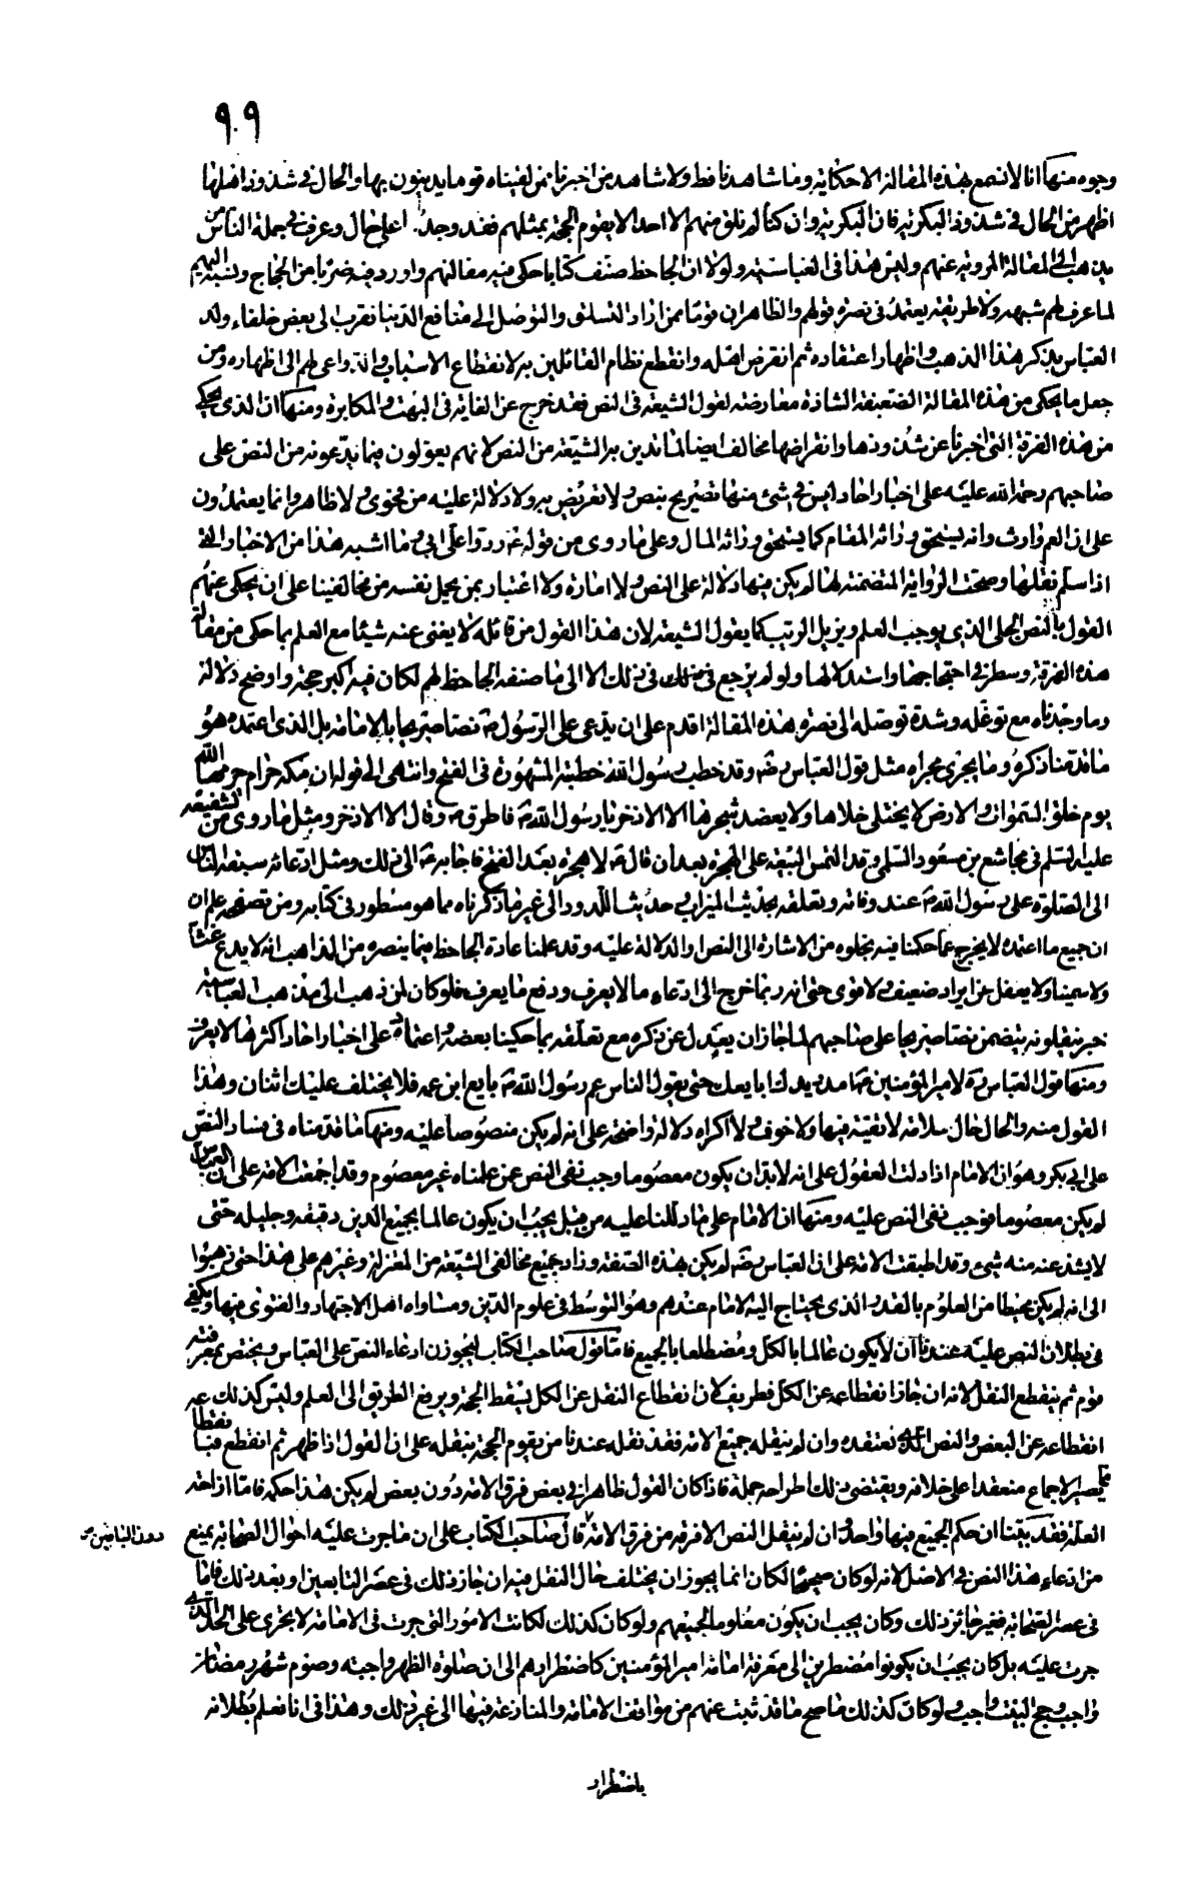 ٩٠٩
وجوه منها انا لا نسمع بهذه المقالة الا حكاية وما شاهدنا قط ولا شاهد من اخبرنا ممن لقيناه قوما يدينون بها والحال في شذوذ اهلها
اظهر من الحال في شذوذ البكرية فان البكرية وان كنا لم نلق منهم الا احدا لا يقوم الحجة بمثلهم فقد وجدوا على حال وعرف في جملة الناس من
يذهب الى المقالة المروية عنهم وليس هذا في العباسية ولولا ان الجاحظ صنف كتابا حكى فيه مقالتهم واورد فيه ضربا من الحجاج ونسبه اليهم
لما عرف لهم شبهة ولا طريقة يعتمد في نصرة قولهم والظاهر ان قوما ممن اراد التسلق والتوصل الى منافع الدنيا تقرب الى بعض خلفاء ولد
العباس بذكر هذا المذهب واظهار اعتقاده ثم انقرض اهله وانقطع نظام القائلين به لانقطاع الاسباب والدواعي لهم الى اظهاره ومن
جعل ما يحكى من هذه المقالة الضعيفة الشاذة معارضة لقول الشيعة في النص فقد خرج عن الغاية في البهت والمكابرة ومنها ان الذي يحكى
من هذه الفرقة التي اخبرنا عن شذوذها وانقراضها مخالف ايضا لما تدين به الشيعة من النص لانهم يعولون فيما يدعونه من النص على
صاحبهم رحمة الله عليه على اخبار احاد ليس في شئ منها تصريح بنص ولا تعريض به ولا دلالة عليه من فحوى ولا ظاهر وانما يعتمدون
على ان العم وارث وانه يستحق وراثة المقام كما يستحق وراثة المال وعلى ما روى من قوله ع ردوا علي ابي وما اشبه هذا من الاخبار التي
اذا سلم نقلها وصحت الرواية المتضمنة لها لم يكن فيها دلالة على النص ولا امارة ولا اعتبار بمن يحمل نفسه من مخالفينا على ان يحكى عنهم
القول بالنص الجلي الذي يوجب العلم ويزيل الريب كما يقول الشيعة لان هذا القول من قائله لا يغني عنه شيئا مع العلم بما حكى من مقالة
هذه الفرقة وسطر في احتجاجها واستدلالها ولو لم يرجع في ذلك الا الى ما صنفه الجاحظ لهم لكان فيه اكبر حجة واوضح دلالة
وما وجدناه مع توغله وشدة توصله الى نصرة هذه المقالة اقدم على ان يدعي على الرسول ص نصا صريحا بالامامة بل الذي اعتمده هو
ما قدمنا ذكره وما يجري مجراه مثل قول العباس رض وقد خطب رسول الله خطبته المشهورة في الفتح وانتهى الى قوله ان مكة حرام حرمها الله
يوم خلق السموات والارض لا يختلى خلاها ولا يعضد شجرها الا الاذخر يا رسول الله ص فاطرق ص وقال الا الاذخر ومثل ما روى من تشفيعه
عليه السلم في مجاشع بن مسعود السلمي وقد التمس البيعة على الهجرة بعد ان قال ص لا هجرة بعد الفتح فاجابه ص الى ذلك ومثل ادعائه سبقه الناس
الى الصلوة على رسول الله ص عند وفاته وتعلقه بحديث الميزاب وحديث اللدود الى غير ما ذكرناه مما هو مسطور في كتابه ومن تصفحه علم ان
ان جميع ما اعتمده لا يخرج عما حكمنا فيه بخلوه من الاشارة الى النص او الدلالة عليه وقد علمنا عادة الجاحظ فيما ينصره من المذاهب انه لا يدع غثا
ولا سمينا ولا يغفل عن ايراد ضعيف ولا قوى حتى انه ربما خرج الى ادعاء ما لا يعرف ودفع ما يعرف فلو كان لمن ذهب الى مذهب العباسية
خبر ينقلونه يتضمن نصا صريحا على صاحبهم لما جاز ان يعدل عن ذكره مع تعلقه بما حكينا بعضه واعتماده على اخبار احاد اكثرها لا يعرف
ومنها قول العباس ره لامير المؤمنين ع امدد يدك ابايعك حتى يقول الناس عم رسول الله ص بايع ابن عمه فلا يختلف عليك اثنان وهذا
القول منه والحال حال سلامة لا تقية فيها ولا خوف ولا اكراه دلالة واضحة على انه لم يكن منصوصا عليه ومنها ما قدمناه في فساد النص
على ابي بكر وهو ان الامام اذا دلت العقول على انه لا بد ان يكون معصوما وجب نفي النص عمن علمناه غير معصوم وقد اجمعت الامة على ان العباس
لم يكن معصوما فوجب نفي النص عليه ومنها ان الامام على ما دللنا عليه من قبل يجب ان يكون عالما بجميع الدين دقيقه وجليله حتى
لا يشذ عنه منه شئ وقد اطبقت الامة على ان العباس رض لم يكن بهذه الصفة وزاد جميع مخالفي الشيعة من المعتزلة وغيرهم على هذا حتى ذهبوا
الى انه لم يكن محيطا من العلوم بالقدر الذي يحتاج اليه الامام عندهم وهو التوسط في علوم الدين ومساواة اهل الاجتهاد والفتوى فيها ويكفي
في بطلان النص عليه عندنا ان لا يكون عالما بالكل ومضطلعا بالجميع فاما قول صاحب الكتاب ليجوزن ادعاء النص على العباس ويختص بمعرفته
قوم ثم ينقطع النقل لانه ان جاز انقطاعه عن الكل فطريف لان انقطاع النقل عن الكل يسقط الحجة ويرفع الطريق الى العلم وليس كذلك
انقطاعه عن البعض والنص الذي نعتقده وان لم ينقله جميع الامة فقد نقله عندنا من يقوم الحجة بنقله على ان القول اذا ظهر ثم انقطع انقطاعا
يصير الاجماع منعقدا على خلافه ويقتضى ذلك اطراحه جملة فاذا كان القول ظاهرا في بعض فرق الامة دون بعض لم يكن هذا حكمه فاما ازاحة
العلة فقد بينا ان حكم الجميع فيها واحد وان لم ينقل النص الا فرقة من فرق الامة قال صاحب الكتاب على ان ما جرت عليه احوال الصحابة يمنع
دون التابعين
من ادعاء هذا النص في الاصل لانه لو كان صحيحا لكان انما يجوز ان يختلف حال النقل فيه ان جاز ذلك في عصر التابعين او بعد ذلك فاما
في عصر الصحابة فغير جائز ذلك وكان يجب ان يكون معلوما لجميعهم ولو كان كذلك لكانت الامور التي جرت في الامامة لا يجرى على الحد الذي
جرت عليه بل كان يجب ان يكونوا مضطرين الى معرفة امامة امير المؤمنين كاضطرارهم الى ان صلوة الظهر واجبة وصوم شهر رمضان
واجب وحج البيت واجب ولو كان كذلك ما صح ما قد ثبت عنهم من مواقف الامامة والمنازعة فيها الى غير ذلك وهذا في انا نعلم بطلانه
باضطرار